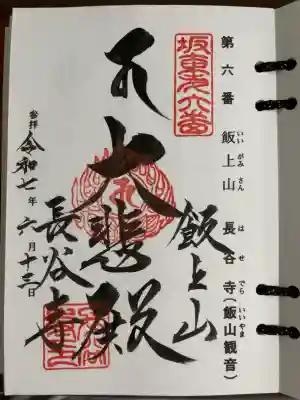 第六番 飯上山 長谷寺(飯山観音)
いいがみさん はせでら いいやま
坂東第六番
飯上山
大悲殿
長谷寺
参拝 令和七年六月十三日